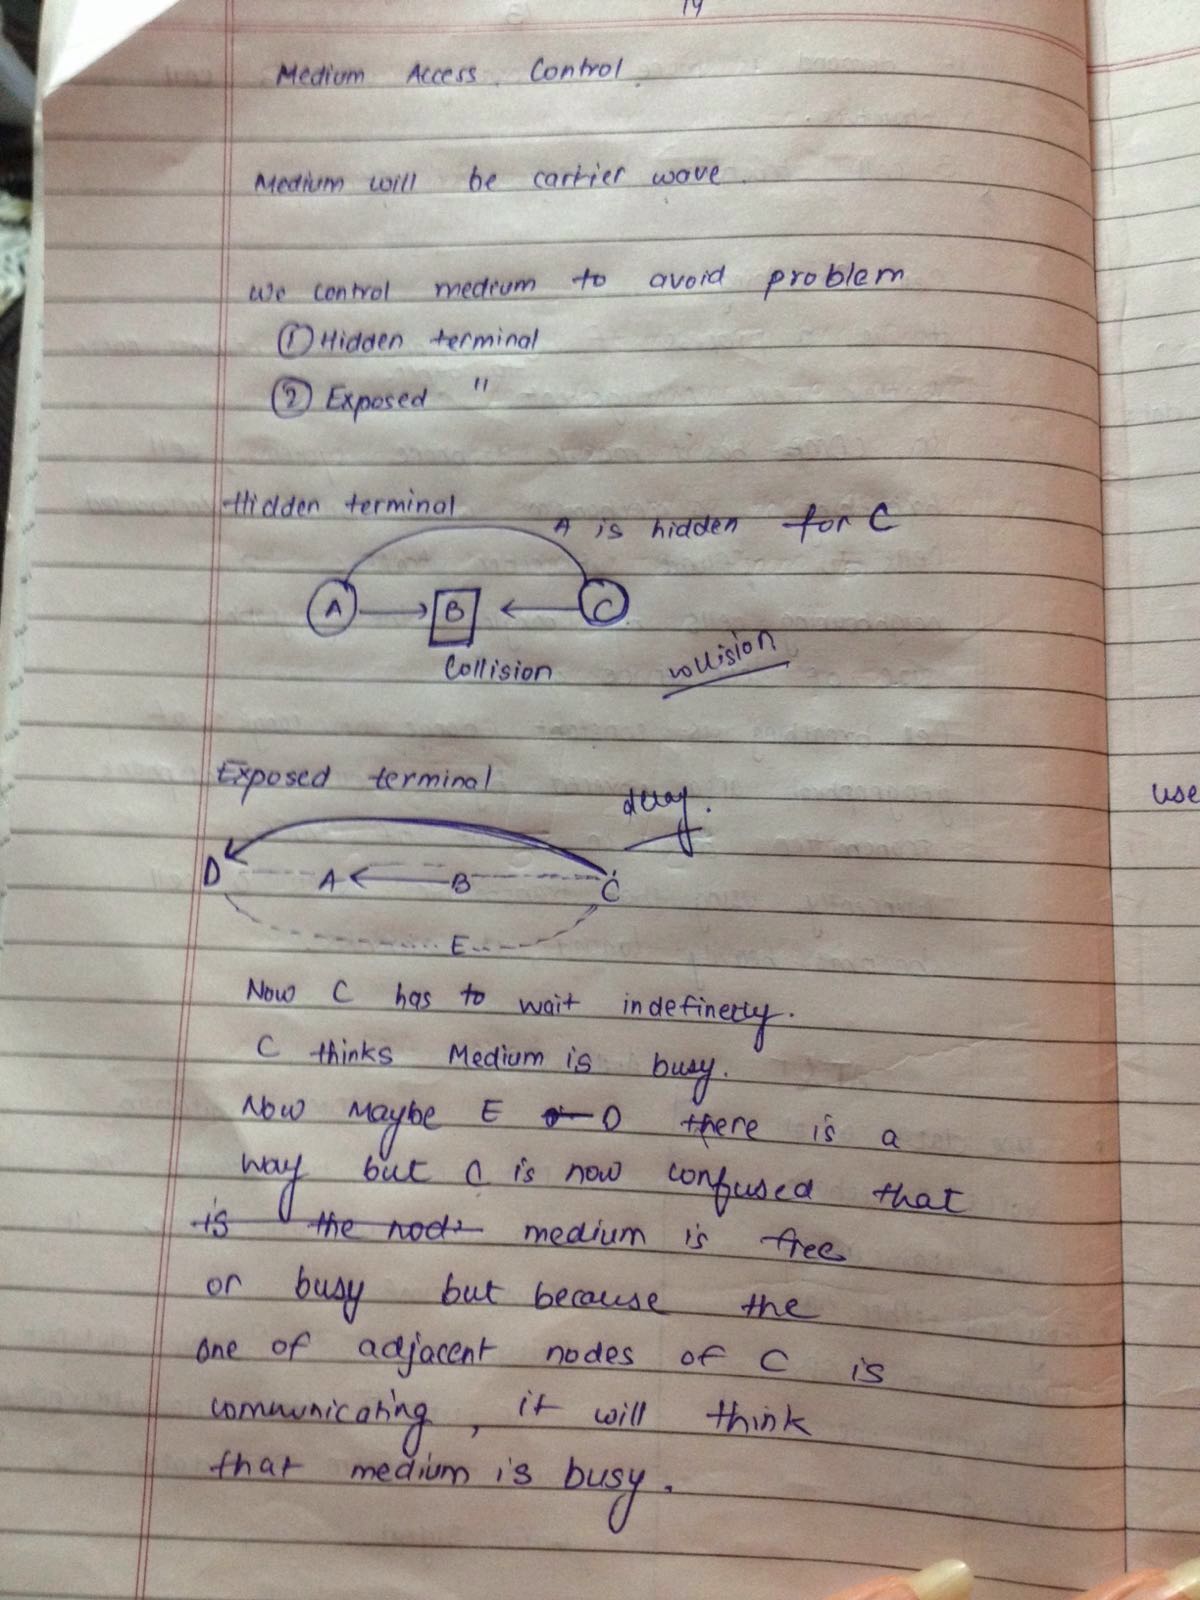 14
Medium Access Control
Medium will be carrier wave.
We control medium to avoid problem
① Hidden terminal
② Exposed "
Hidden terminal
A is hidden for C
A B C
Collision
collision
Exposed terminal
delay.
D A B C
E
Now C has to wait indefinetly.
C thinks Medium is busy.
Now Maybe E D there is a
way but C is now confused that
is the node medium is free
or busy but because the
one of adjacent nodes of C is
communicating, it will think
that medium is busy.
use